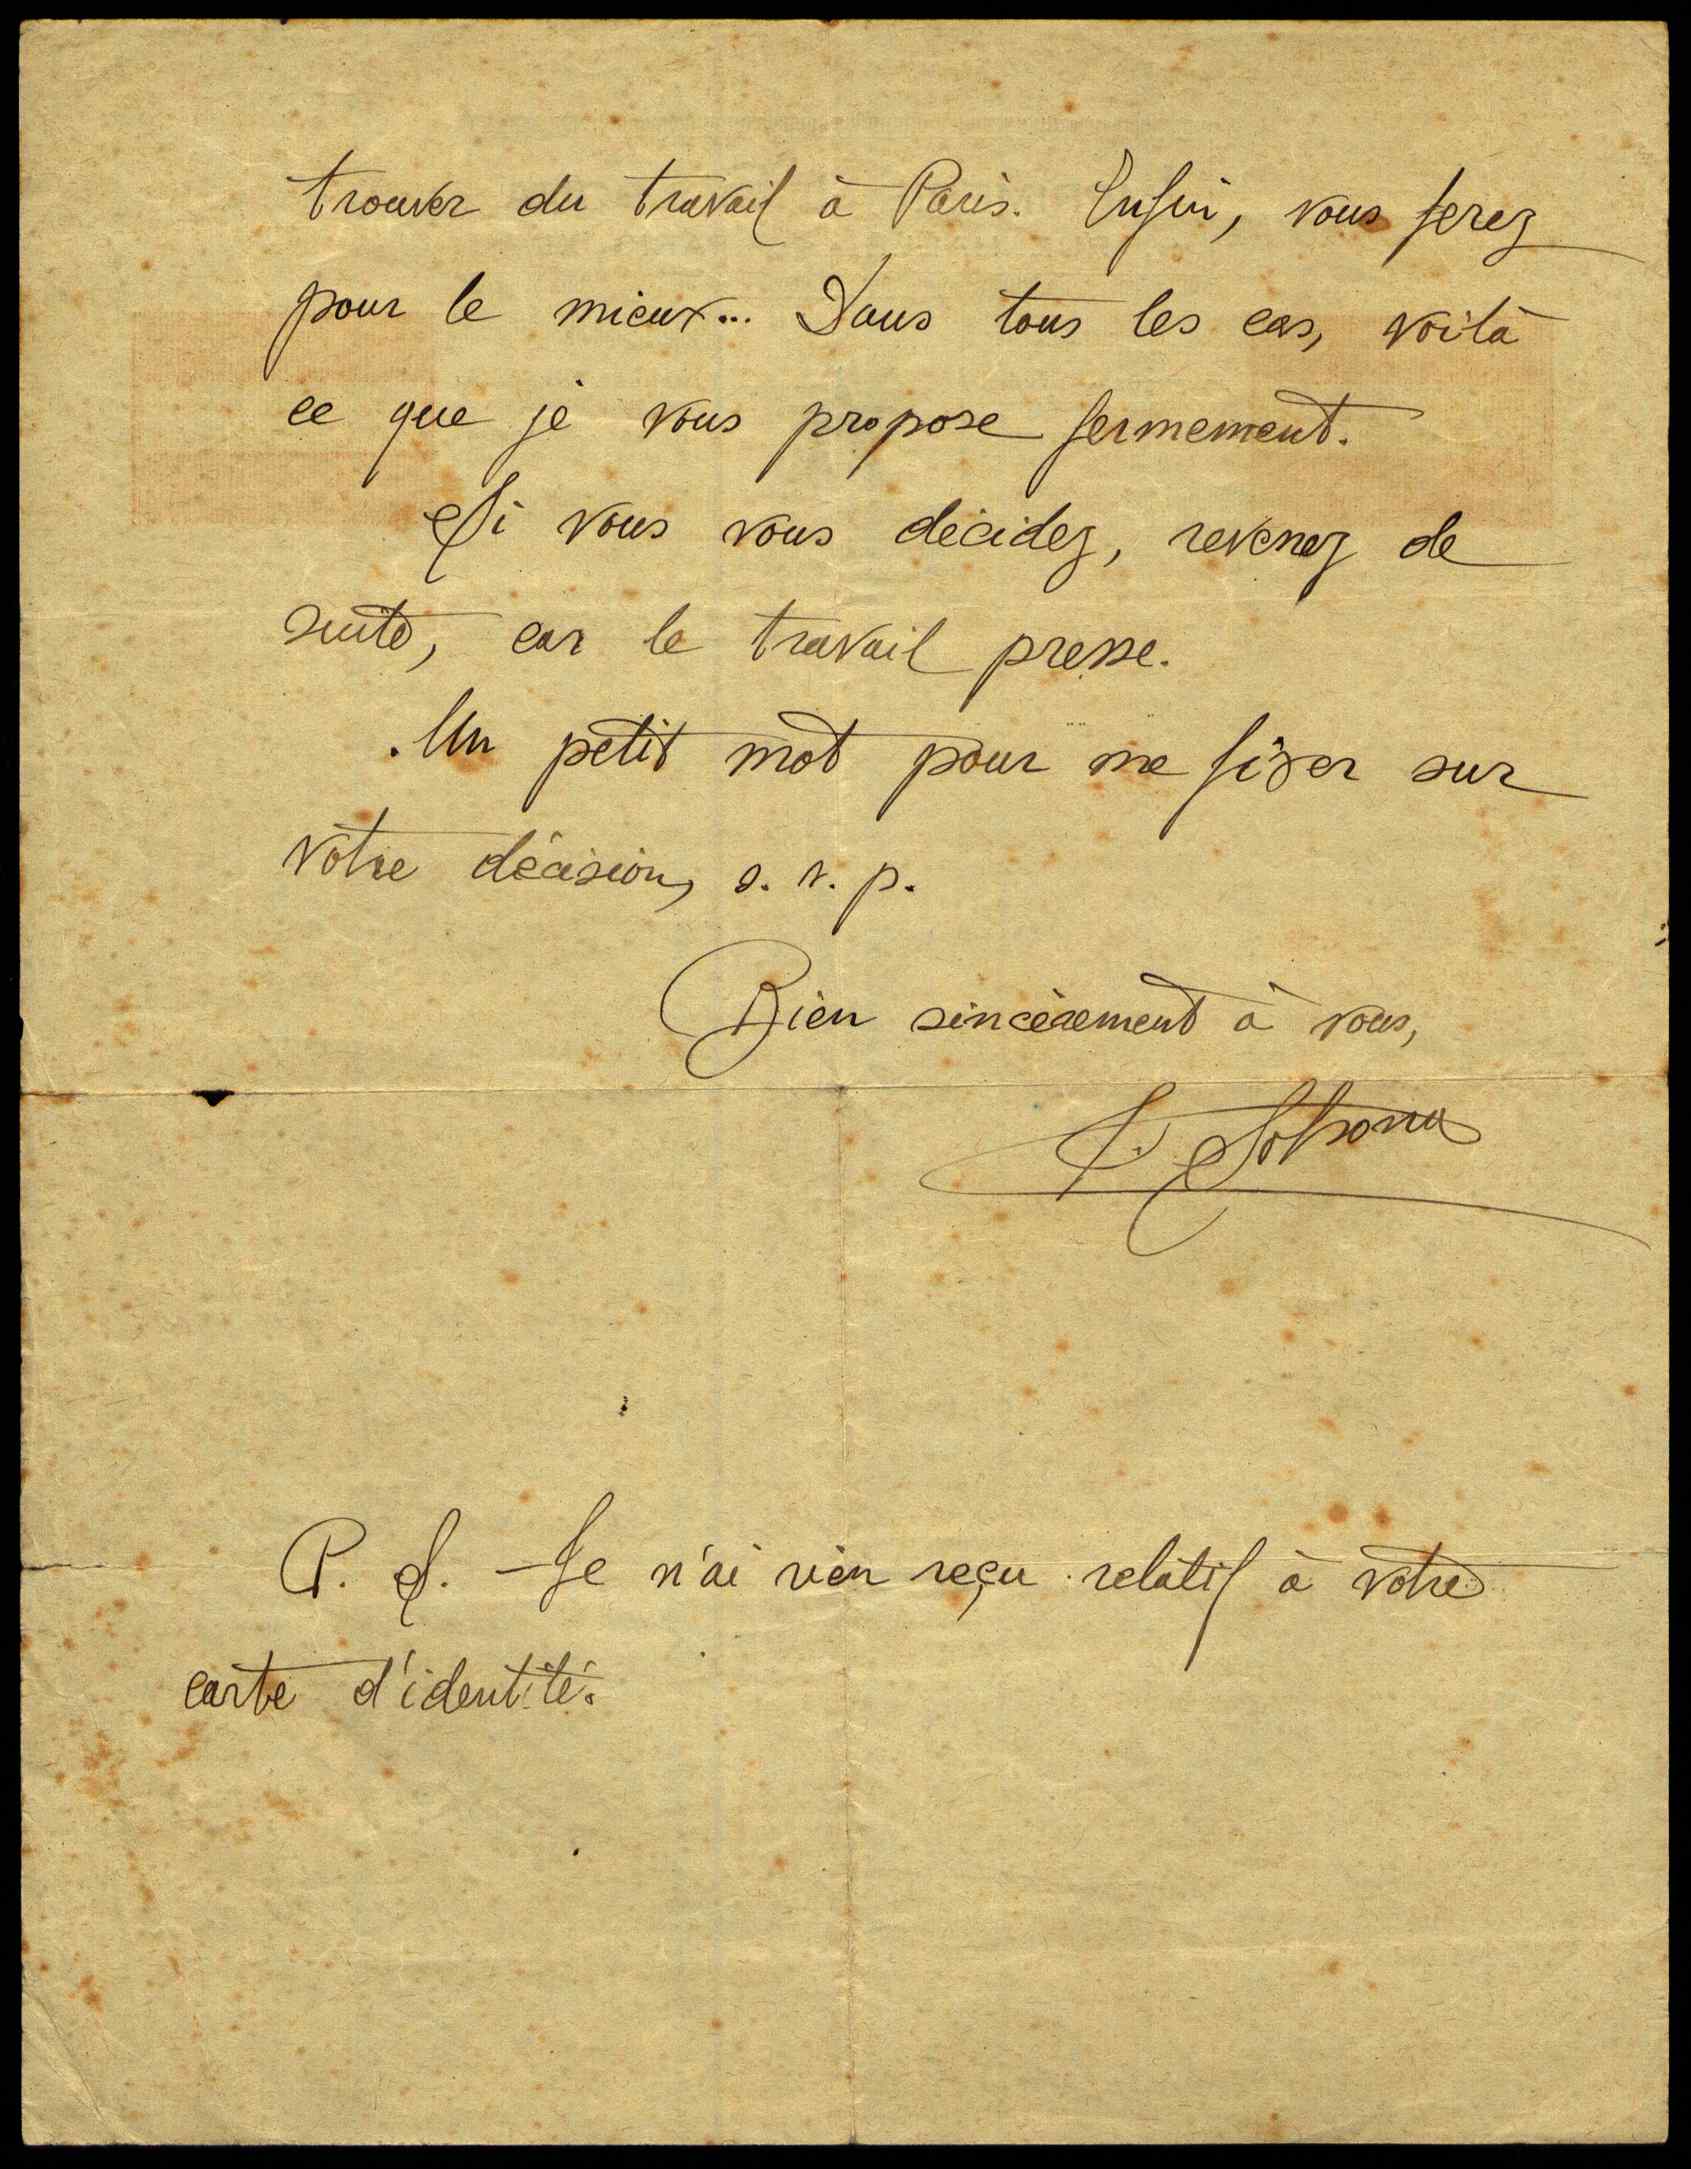 trouver du travail à Paris. Enfin, vous ferez
pour le mieux... Dans tous les cas, voilà
ce que je vous propose fermement.
Si vous vous décidez, revenez de
suite, car le travail presse.
Un petit mot pour me fixer sur
votre décision, s. v. p.
Bien sincèrement à vous,
P. S. - Je n'ai rien reçu relatif à votre
carte d'identité.